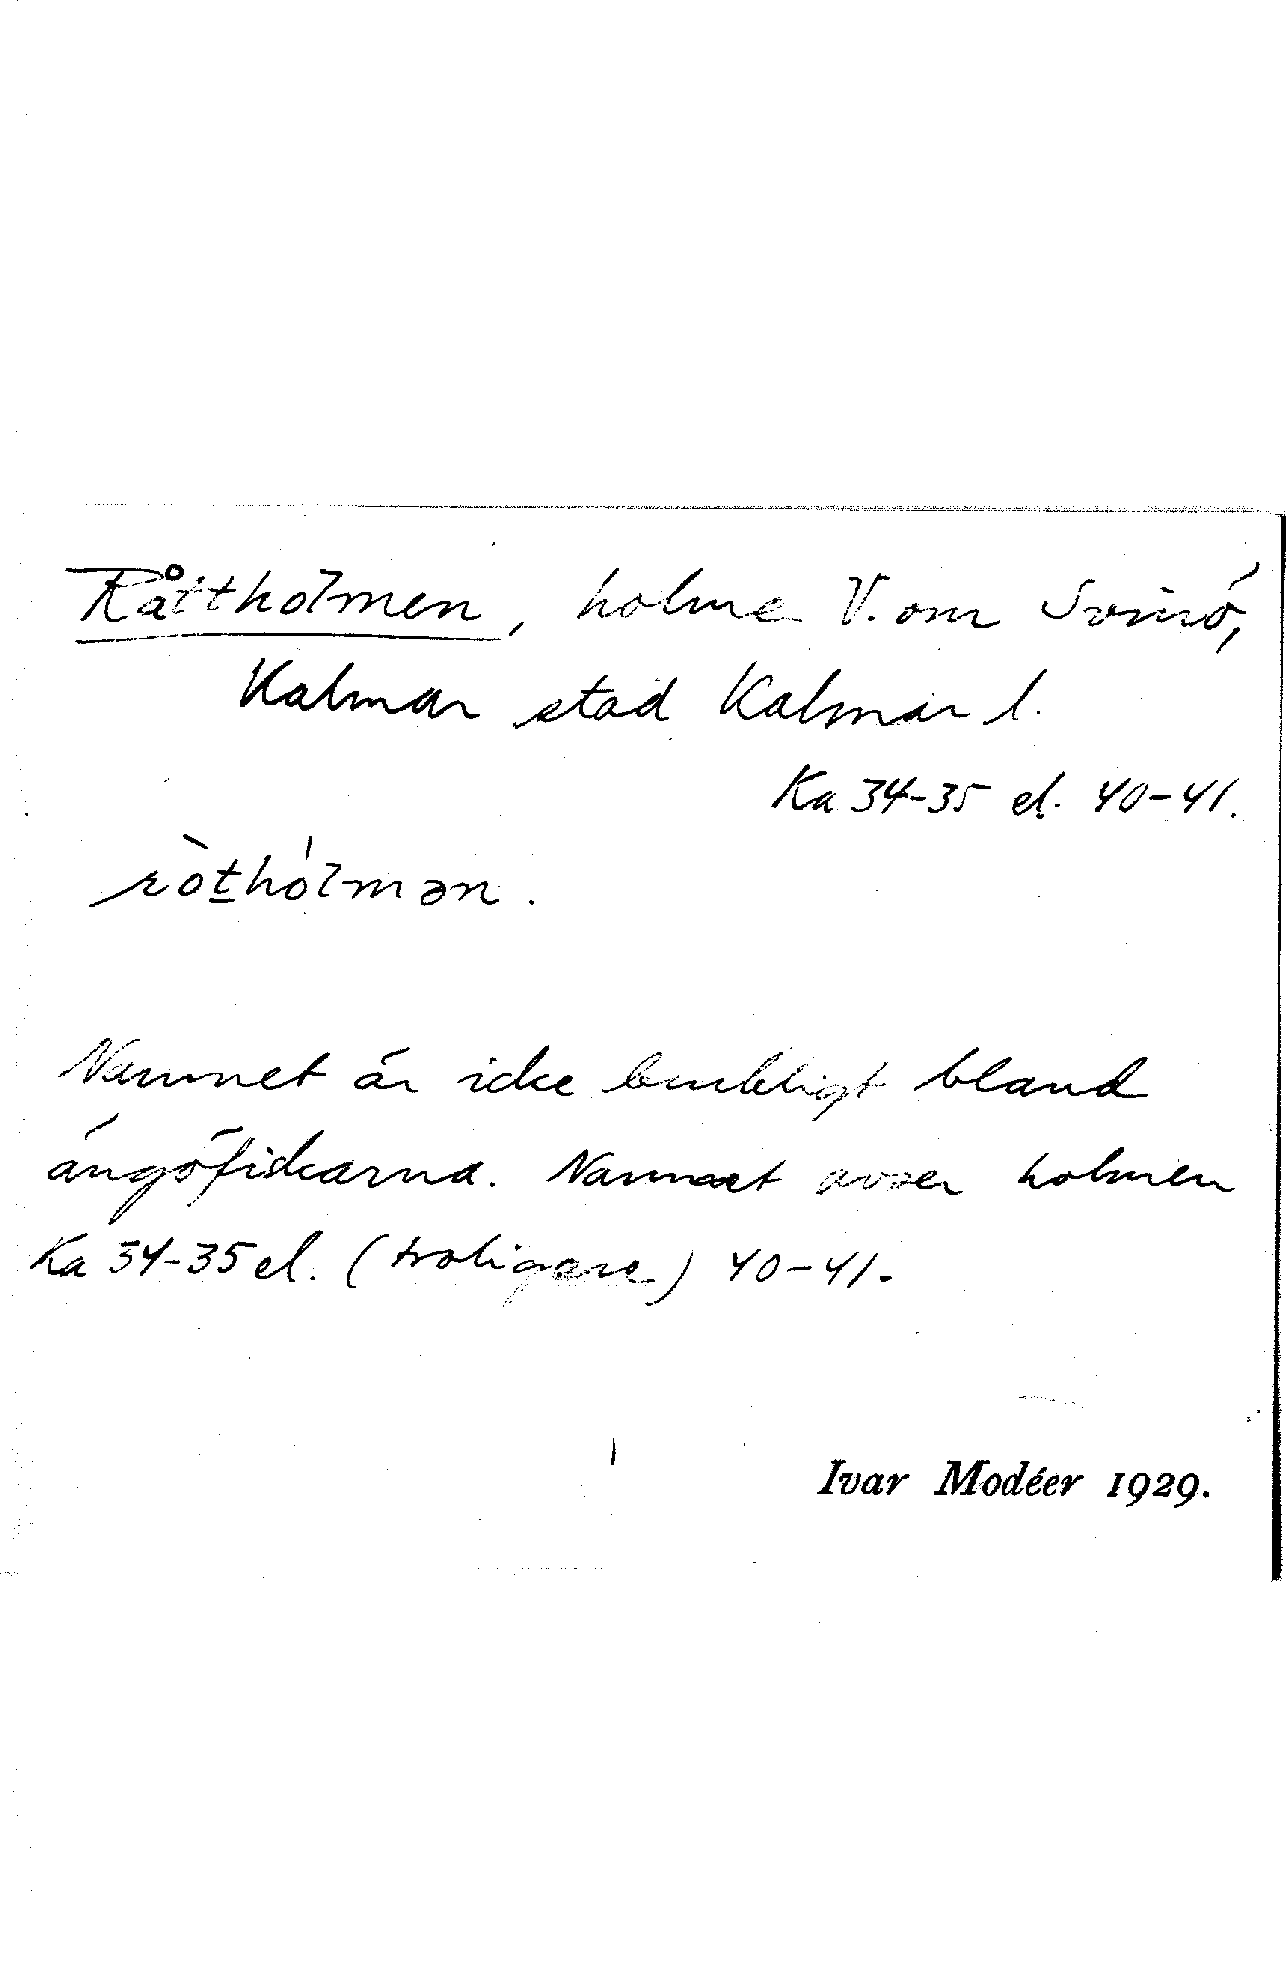 Råttholmen, holme V. om Svinö,
Kalmar stad Kalmar l.
Ka 34-35 el. 40-41.
ròt̲hólmən.
Namnet är icke brukligt bland
ängöfiskarna. Namnet avser holmen
Ka 34-35 el. (troligare) 40-41.
Ivar Modéer 1929.